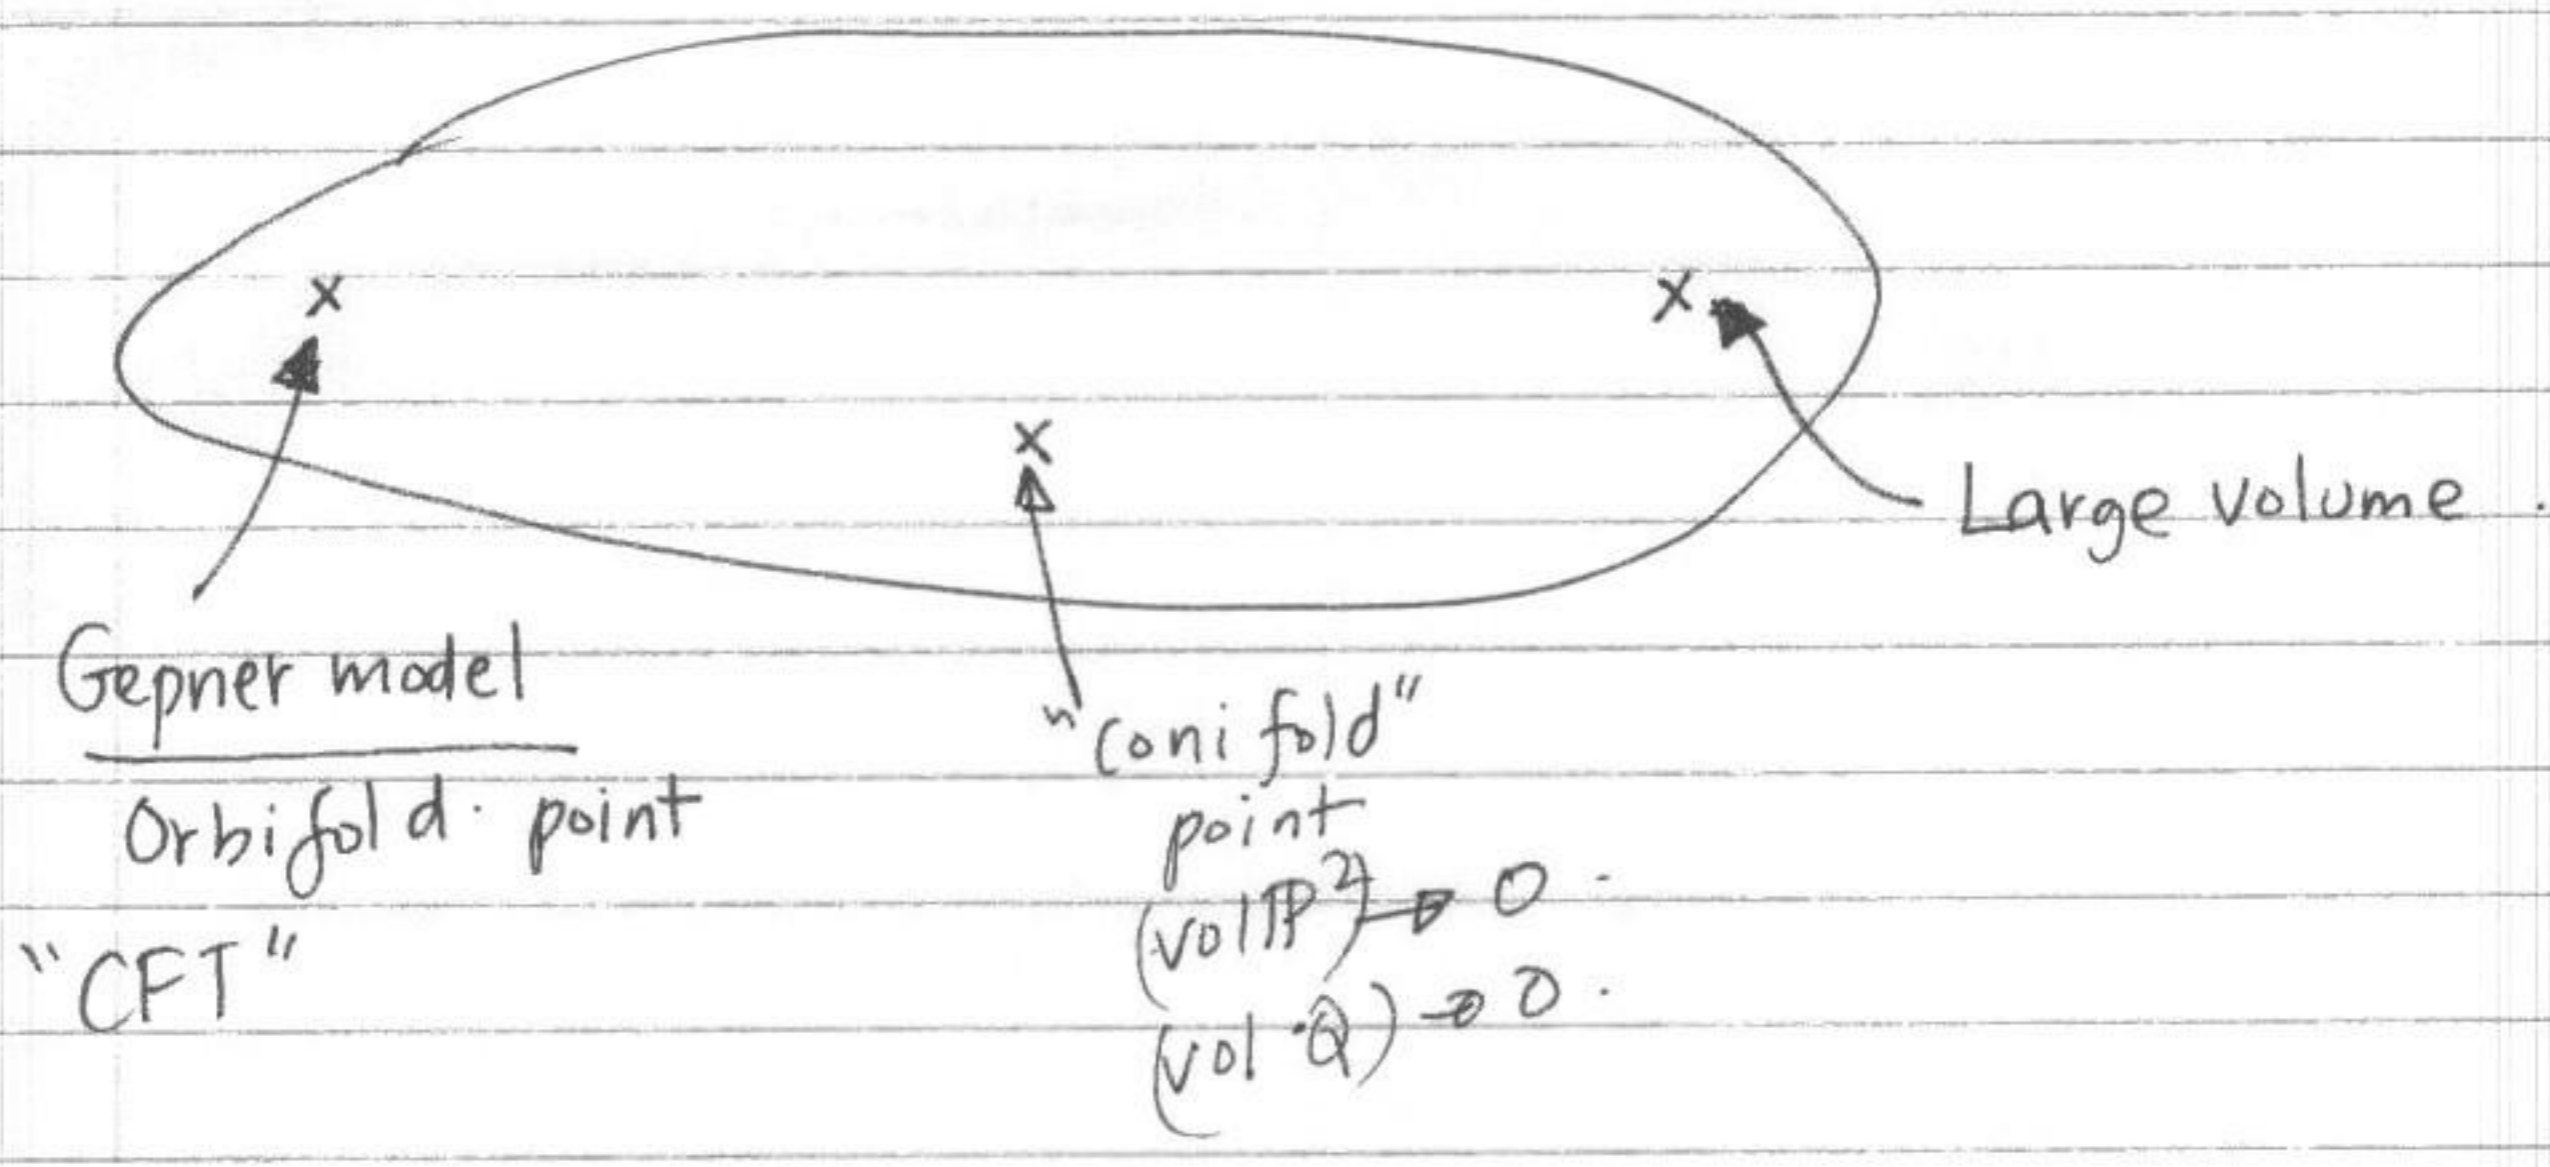 x
x
x
Large volume.
Gepner model
Orbifold point
"CFT"
"Conifold"
point
(vol ℙ²) → 0.
(vol Q) → 0.